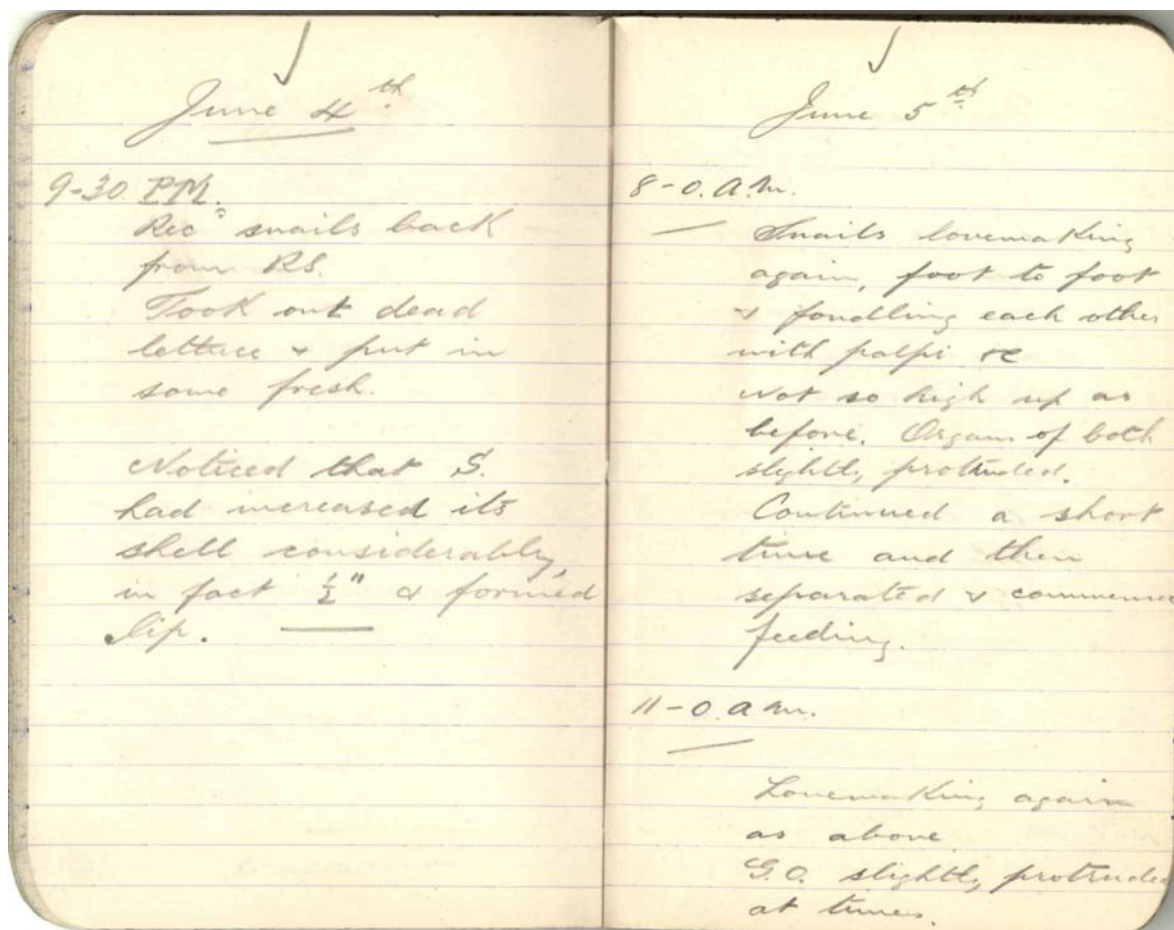 June 4th
9-30 PM.
Recd snails back
from RS.
Took out dead
lettuce & put in
some fresh.
Noticed that S.
had increased its
shell considerably,
in fact ½" & formed
lip.
June 5th
8-0. a.m.
Snails lovemaking
again, foot to foot
& fondling each other
with palpi &c
Not so high up as
before. Organs of both
slightly protruded.
Continued a short
time and then
separated & commence
feeding.
11-0. a.m.
Lovemaking again
as above.
G.O. slightly protruded
at times.